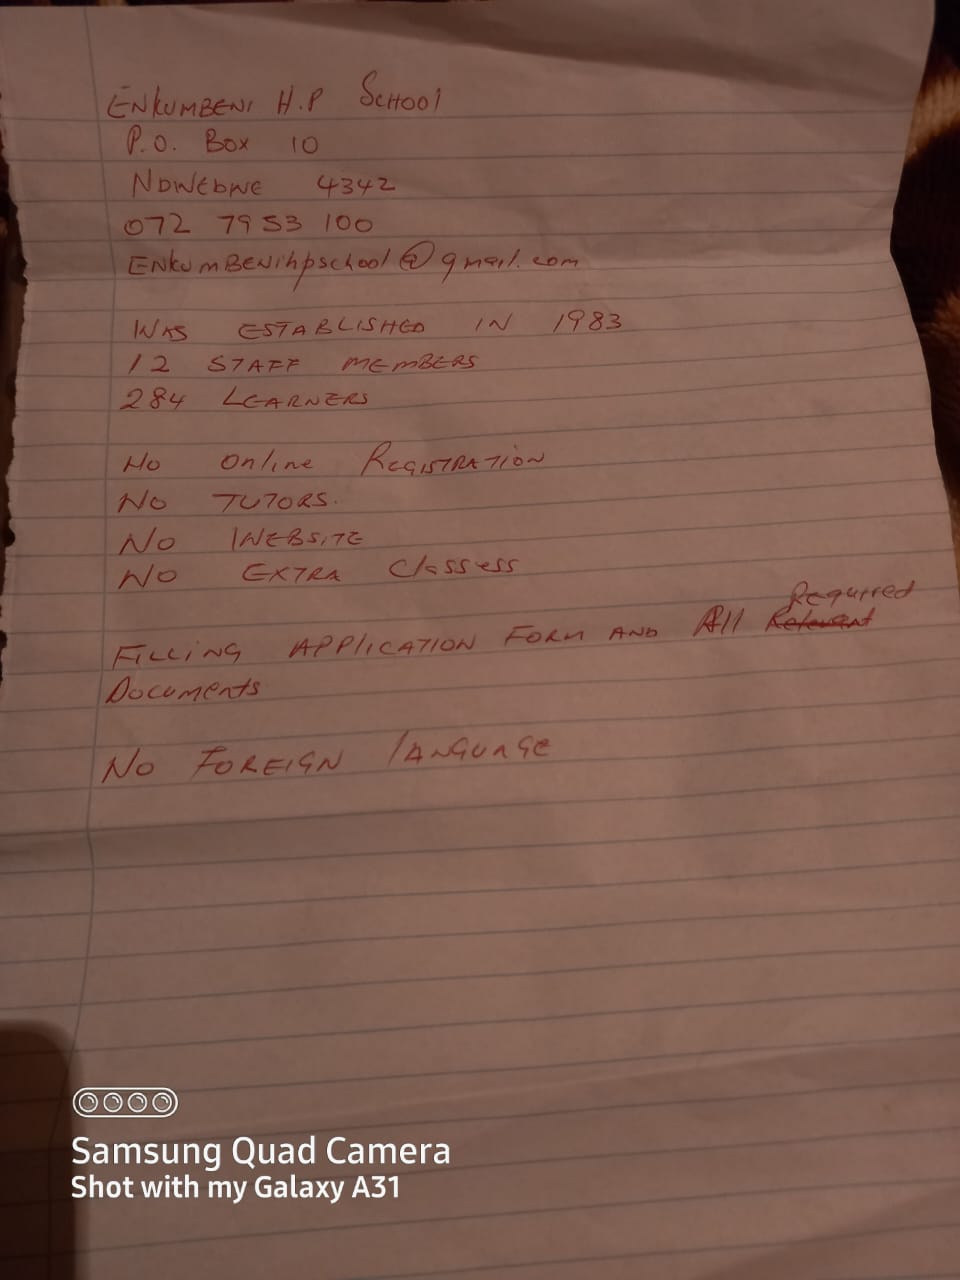 ENKUMBENI H.P SCHOOL
P.O. BOX 10
NDWEDWE 4342
072 7953 100
ENKUMBENIhpschool@gmail.com
WAS ESTABLISHED IN 1983
12 STAFF MEMBERS
284 LEARNERS
NO Online REGISTRATION
NO TUTORS.
NO WEBSITE
NO EXTRA Classess
Required
FILLING APPLICATION FORM AND All Relevant
Documents
NO FOREIGN LANGUAGE
Samsung Quad Camera
Shot with my Galaxy A31